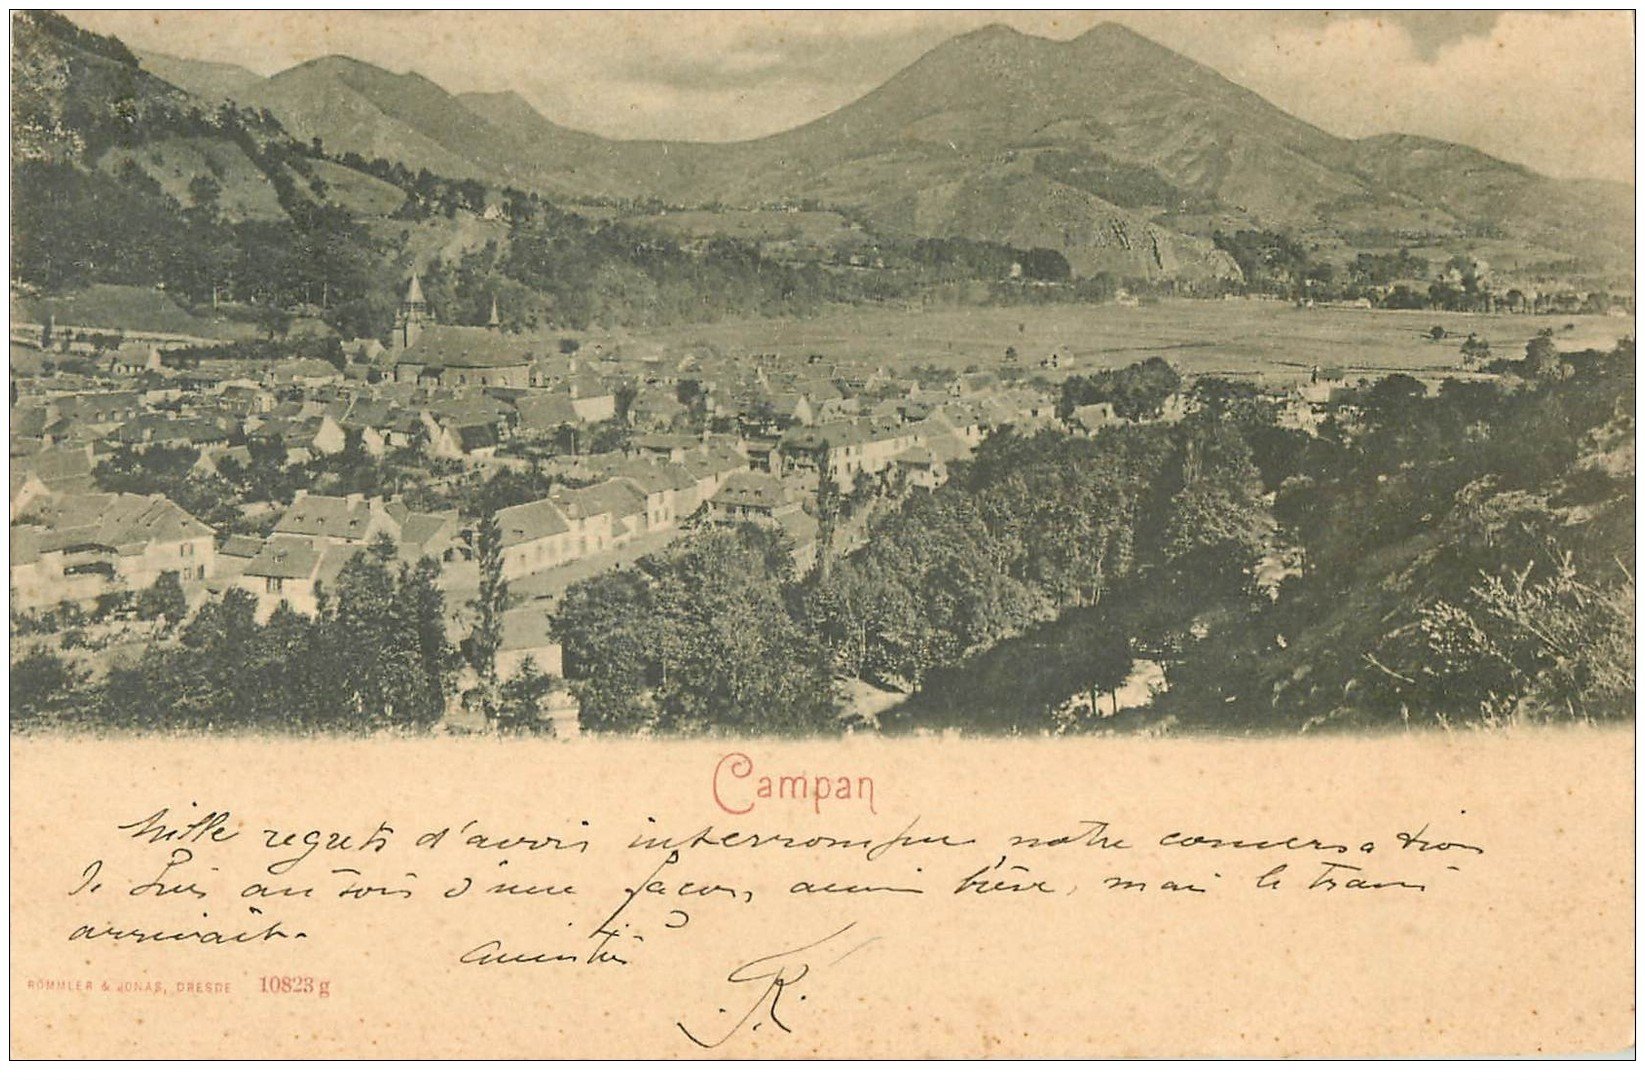 Campan
Mille regrets d'avoir interrompu notre conversation
de soir d'une façon, aussi brève, mais le train
arrivait.
Amitiés
R.
RÖMMLER & JONAS, DRESDE 10823 g